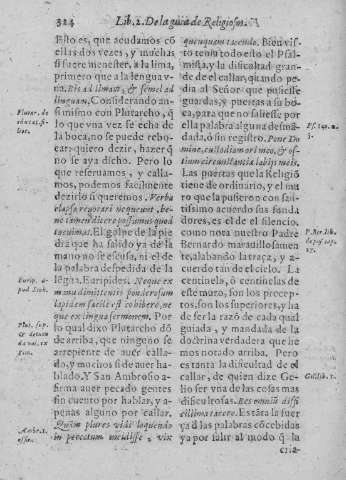 324 Lib. 2. De la guia de Religiosos.
Esto es, que acudamos cõ
ellas dos vezes, y muchas
si fuere menester, a la lima,
primero que a la lengua v
na. Bis ad limam, & semel ad
linguam. Considerando an-
simismo con Plutarcho, q̃
lo que vna vez se echa de
la boca, no se puede rebo-
car: quiero dezir, hazer q̃
no se aya dicho. Pero lo
que reseruamos, y calla-
mos, podemos facilmente
dezirlo si queremos. Verba
elapsa reuocari nequeunt, be-
ne tamen dicere possumus quod
tacuimus. El golpe de la pie
dra que ha salido ya de la
mano no se escusa, ni el de
la palabra despedida de la
lẽgua. Euripides. Neque ex
manu dimittentis ponderosum
lapidem facile est cohibere, ne
que ex lingua sermonem. Por
lo qual dixo Plutarcho dõ
de arriba, que ninguno se
arrepiente de auer calla-
do, y muchos si de auer ha-
blado. Y San Ambrosio a-
firma auer pecado gentes
sin cuento por hablar, y a-
penas alguno por callar.
Quàm plures vidi loquendo
in peccatum incidisse, vix
Plutar. de
Eurip. a-
Plut. sup.
Ambr. 1.
offic.
quenquam tacendo. Bien vis-
to tenia todo esto el Psal-
mista, y la dificultad gran-
de de el callar, quando pe-
dia al Señor que pusiesse
guardas, y puertas a su bo-
ca, para que no saliesse por
ella palabra alguna desmã-
dada, o sin registro. Pone Do
mine, custodiam ori meo, & os-
tium circunstantiæ labijs meis.
Las puertas que la Religiõ
tiene de ordinario, y el mu
ro que la pusieron con san-
tissimo acuerdo sus funda
dores, es el de el silencio,
como nota nuestro Padre
Bernardo marauillosamen
te, alabando la traça, y a-
cuerdo tan de el cielo. La
centinela, ò centinelas de
este muro, son los precep-
tos, son los superiores, y ha
de ser la razõ de cada qual
guiada, y mandada de la
doctrina verdadera que he
mos notado arriba. Pero
es tanta la dificultad de el
callar, de quien dize Ge-
lio ser vna de las cosas mas
dificultosas. Res omniũ diffi
cillima tacere. Està tã la suer
ta d las palabras cõcebidas
ya por salir al modo q̃ la
Ps. 140. n.
3.
P. Ber. lib.
Gell. lib. 1.